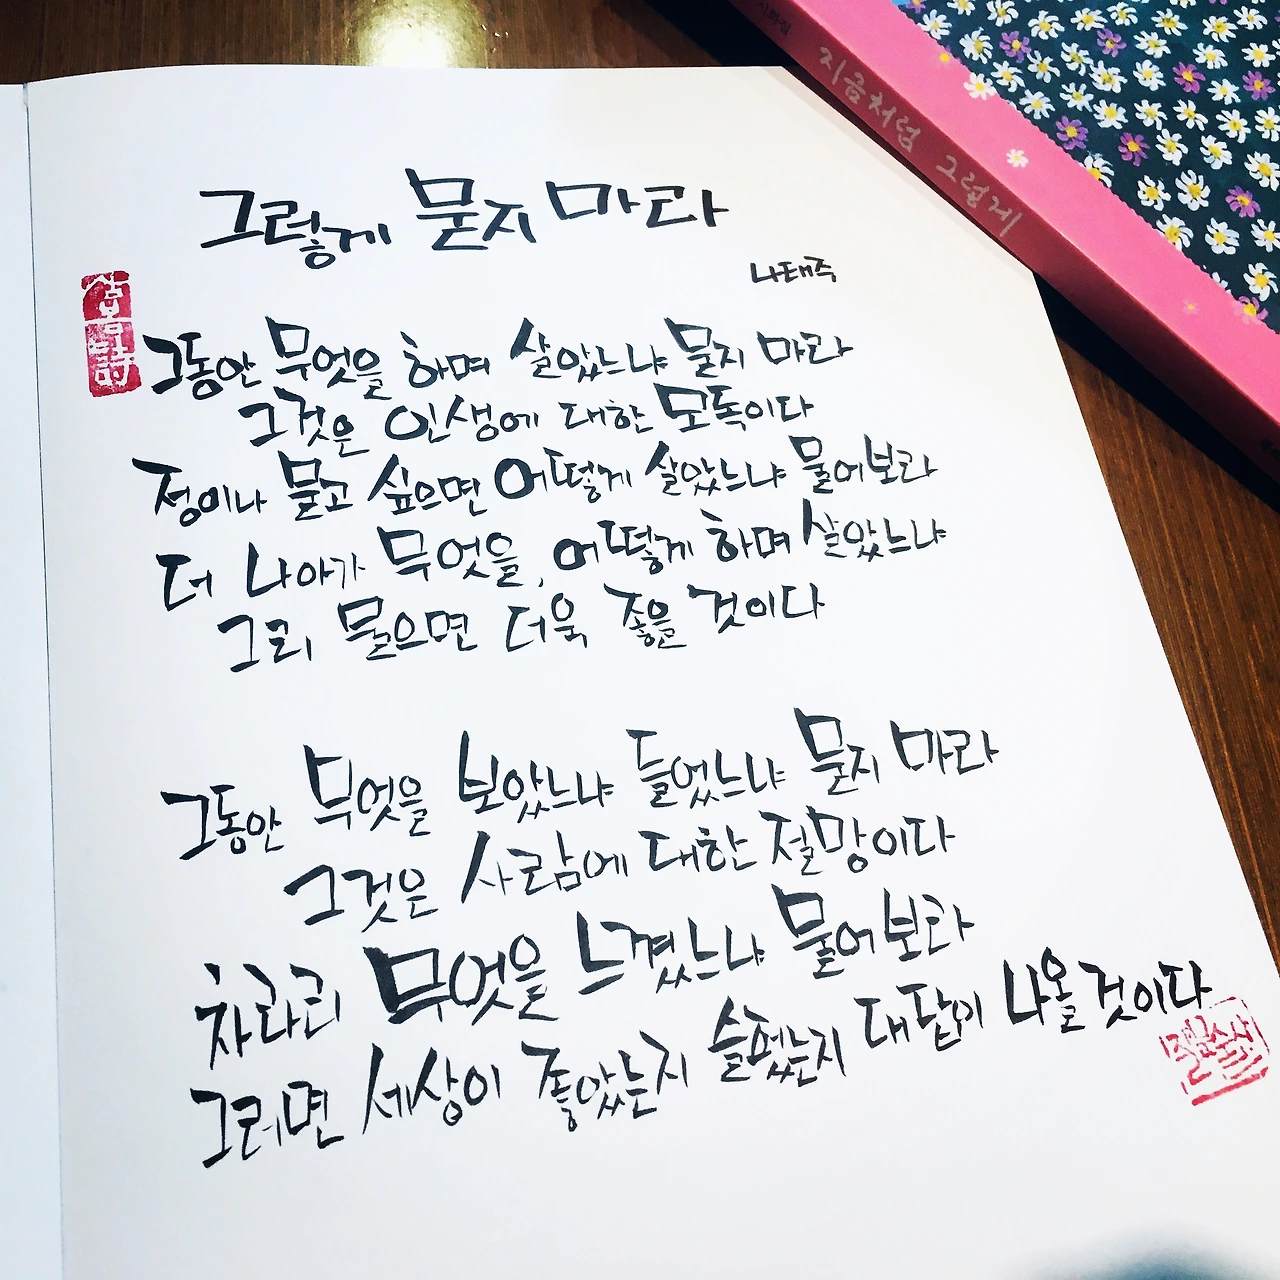 시화집
지금처럼 그렇게
그렇게 묻지 마라
나태주
그동안 무엇을 하며 살았느냐 묻지 마라
그것은 인생에 대한 모독이다
정이나 묻고 싶으면 어떻게 살았느냐 물어보라
더 나아가 무엇을, 어떻게 하며 살았느냐
그리 물으면 더욱 좋을 것이다
그동안 무엇을 보았느냐 들었느냐 묻지 마라
그것은 사람에 대한 절망이다
차라리 무엇을 느꼈느냐 물어보라
그러면 세상이 좋았는지 슬펐는지 대답이 나올 것이다